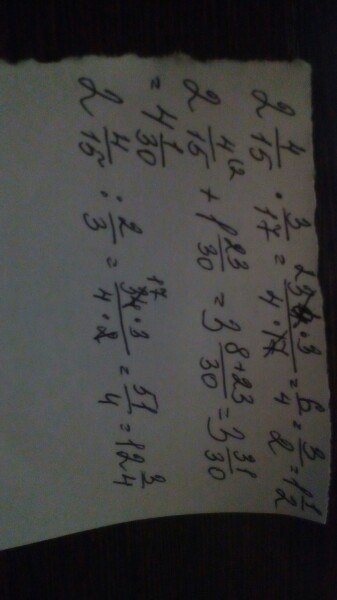 2 4/15 · 3/17 = 2 34·3/4·17 = 6/4 = 3/2 = 1 1/2
2 4/15 + 1 23/30 = 3 8+23/30 = 3 31/30
= 4 1/30
2 4/15 : 2/3 = 17 34·3/4·2 = 51/4 = 12 3/4